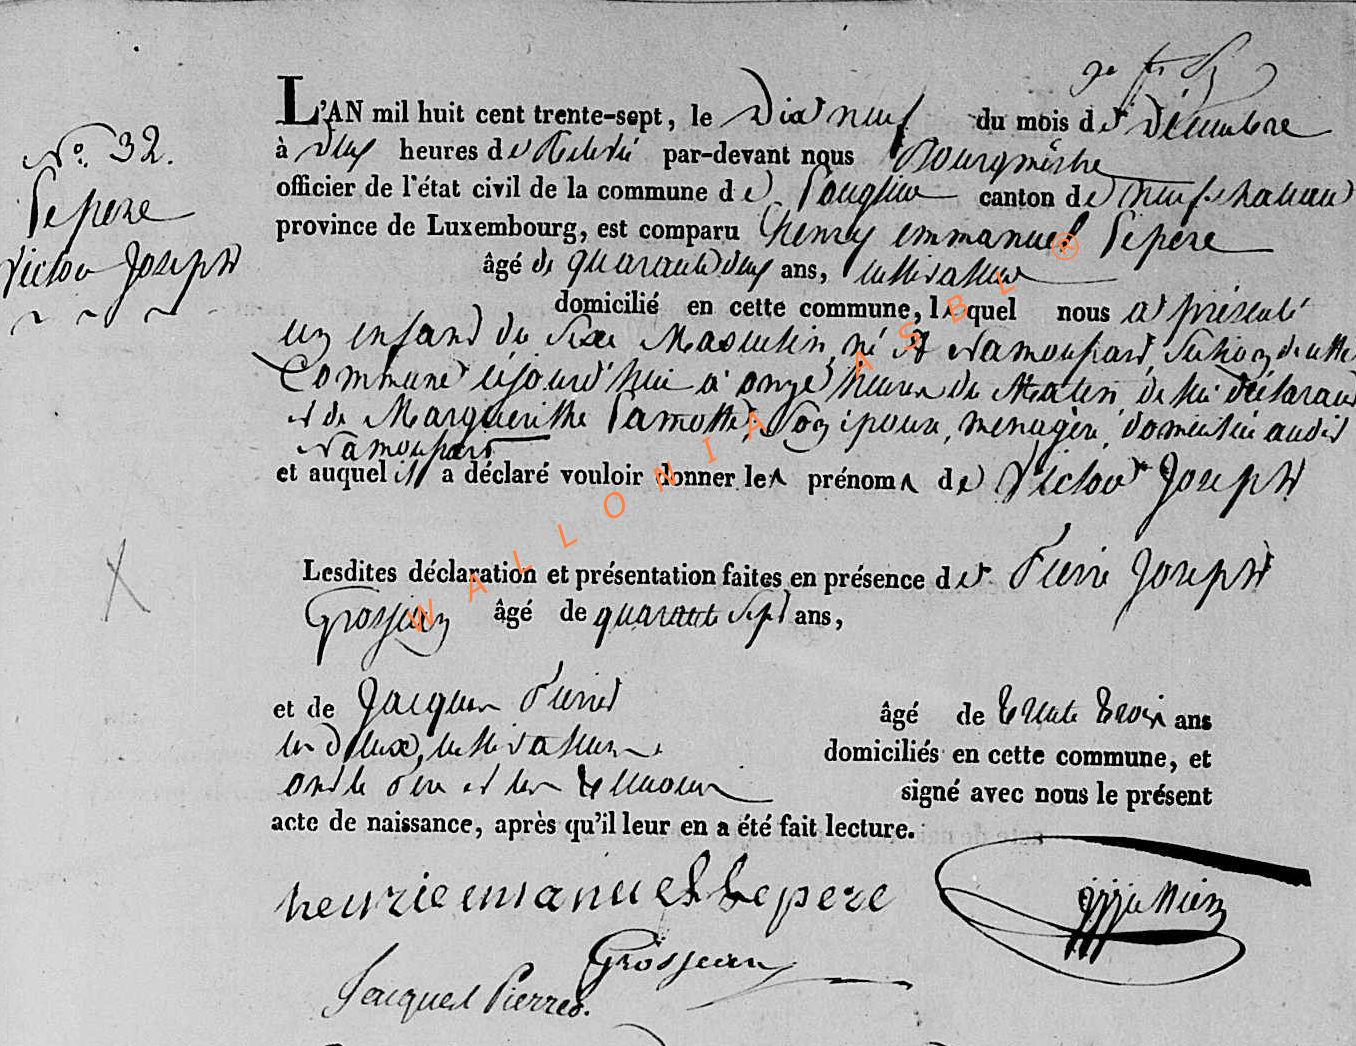 L'AN mil huit cent trente-sept, le Dix neuf du mois de Décembre
N.º 32.
à deux heures de Relevé par-devant nous Bourgmestre
officier de l'état civil de la commune de canton de neufchateau
Lepere
province de Luxembourg, est comparu henry emmanuel Lepere
Victor Joseph
âgé de quarante deux ans, cultivateur
domicilié en cette commune, lequel nous a présenté
un enfant du sexe Masculin, né à Namoupart, section de cette
Commune, cejourd'hui à onze heures du Matin de lui déclarant
et de Marguerithe Lamotte, son épouse, menagère, domiciliée audit
Namoupart
et auquel il a déclaré vouloir donner les prénoms de Victor Joseph
Lesdites déclaration et présentation faites en présence de Pierre Joseph
Grosjean âgé de quarante sept ans,
et de Jacques Pierret âgé de trente trois ans
les deux, cultivateurs domiciliés en cette commune, et
ont le Père et les témoins signé avec nous le présent
acte de naissance, après qu'il leur en a été fait lecture.
henrie emanuel Lepere
Grosjean
Jacques Pierred.
WALLONIA ASBL ®